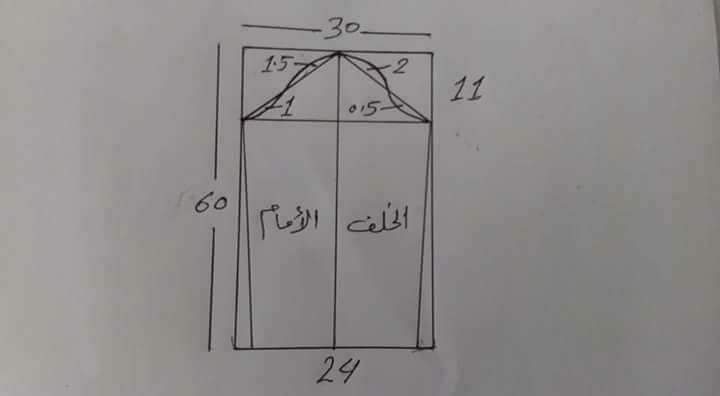 30
1.5
2
11
1
0.5
60
الأمام
الخلف
24